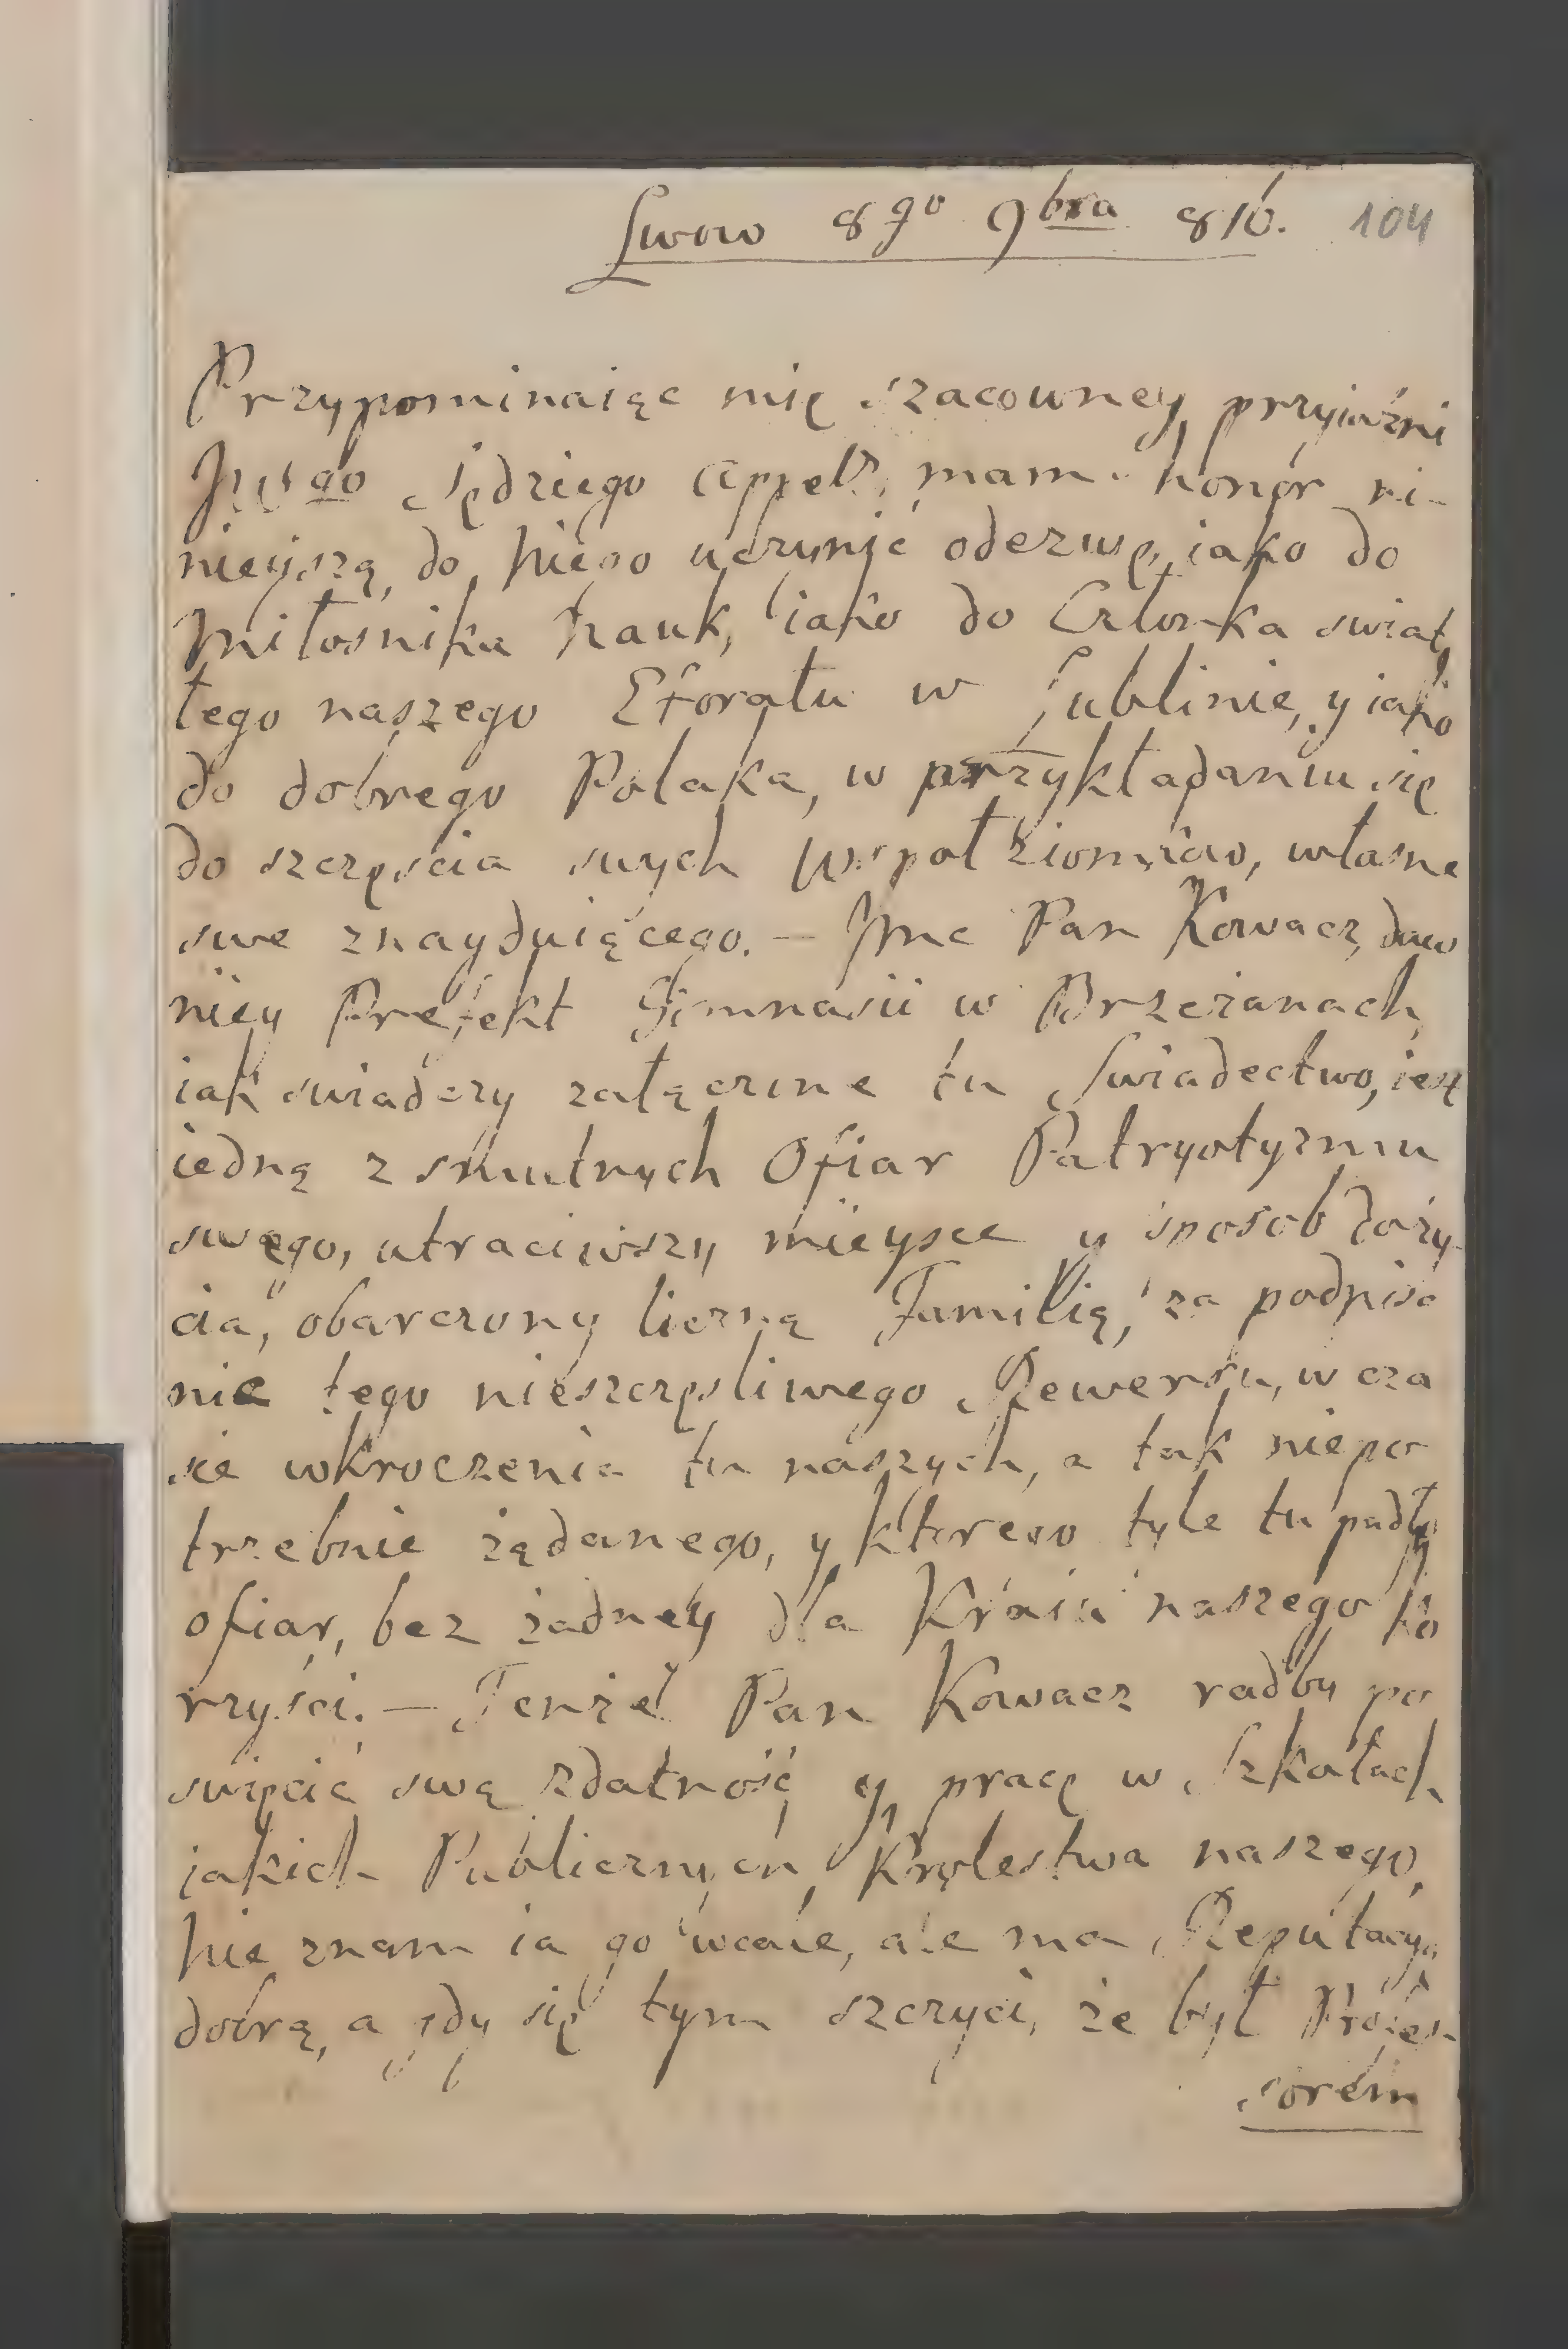 Lwow 8go 9bra 816. 104
Przypominaiąc mię szacowney przyiaźni
JWgo Sędziego Appell. mam honor ni-
nieyszą do Niego uczynić odezwę, iako do
Miłosnika Nauk, iako do Członka swiat
łego naszego Eforatu w Lublinie, y iako
do dobrego Polaka, w przykładaniu się
do szczęscia swych wspołziomków, własne
swe znayduiącego. — Jmc Pan Kowacz, daw
niey Prefekt Gimnasii w Brzeżanach,
iak swiadczy załączone tu Swiadectwo, iest
iedną z smutnych Ofiar Patryotyzmu
swego, utraciwszy mieysce y sposob do ży
cia, obarczony liczną Familią, za podpisa
nie tego nieszczęsliwego Rewersu, w cza
sie wkroczenia tu naszych, a tak niepo
trzebnie żądanego, y ktorego tyle tu padły
ofiar, bez żadney dla Kraiu naszego ko
rzyści. — Tenże Pan Kowacz radby po
swięcić swą zdatność y pracę w Szkołach
jakich Publicznych Krolestwa naszego,
Nie znam ia go wcale, ale ma Reputacyą
dobrą, a gdy się tym szczyci, że był Profes-
sorem